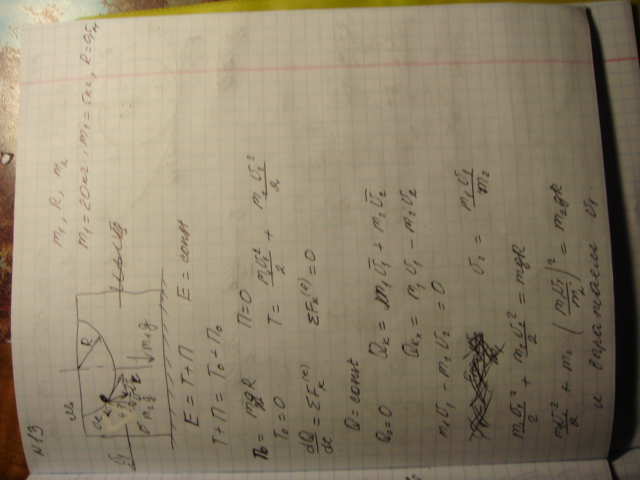 N13
m₁, R, m₂
m₁ = 20кг, m₂ = 5кг, R = 0,5м
R
m₁g
E = T + П    E = const
T + П = T₀ + П₀
П₀ = mgR    П = 0
T₀ = 0    T = m₁v₁²/2 + m₂v₂²/2
dQ/dt = ΣFₖ⁽ᵉ⁾    ΣFₖ⁽ᵉ⁾ = 0
Q = const    Qₖ = m₁v̅₁ + m₂v̅₂
Q₀ = 0    Qₖₓ = m₁v₁ - m₂v₂
m₁v₁ - m₂v₂ = 0
v₂ = m₁v₁/m₂
m₁v₁²/2 + m₂v₂²/2 = mgR
m₁v₁²/2 + m₂(m₁v₁/m₂)² = m₂gR
и выражаем v₁